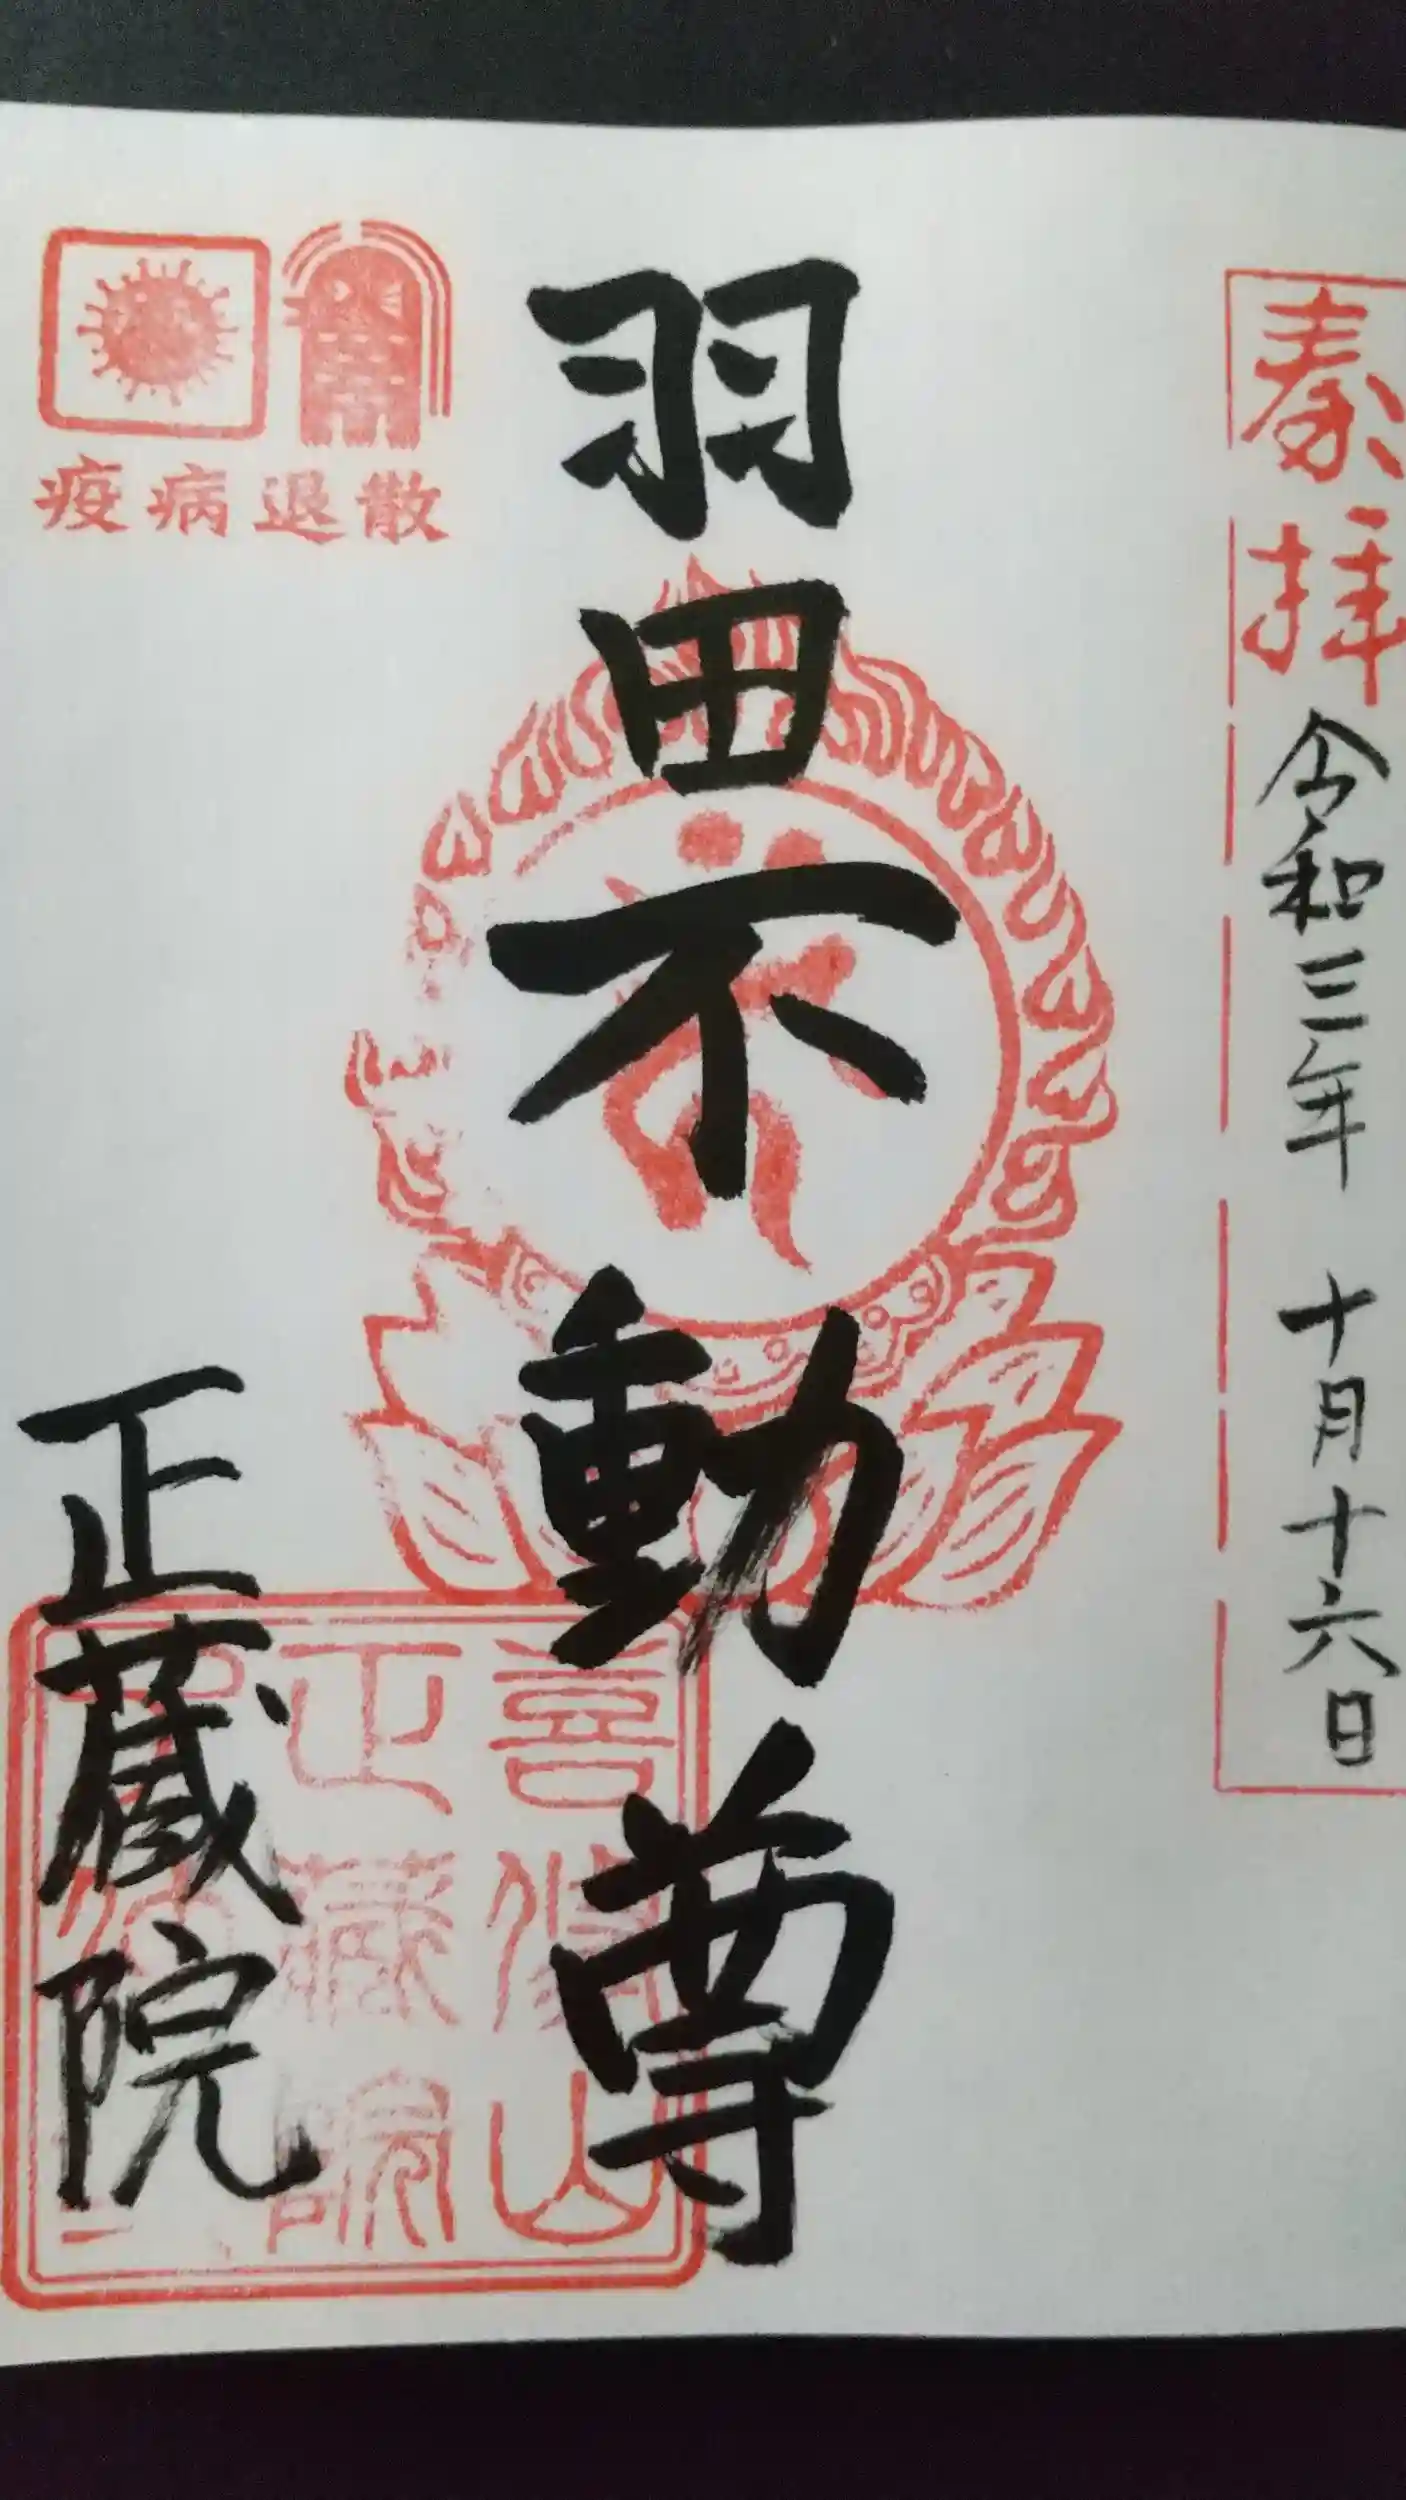 奉拝
令和三年 十月十六日
羽田不動尊
疫病退散
正蔵院
喜修山
正蔵院